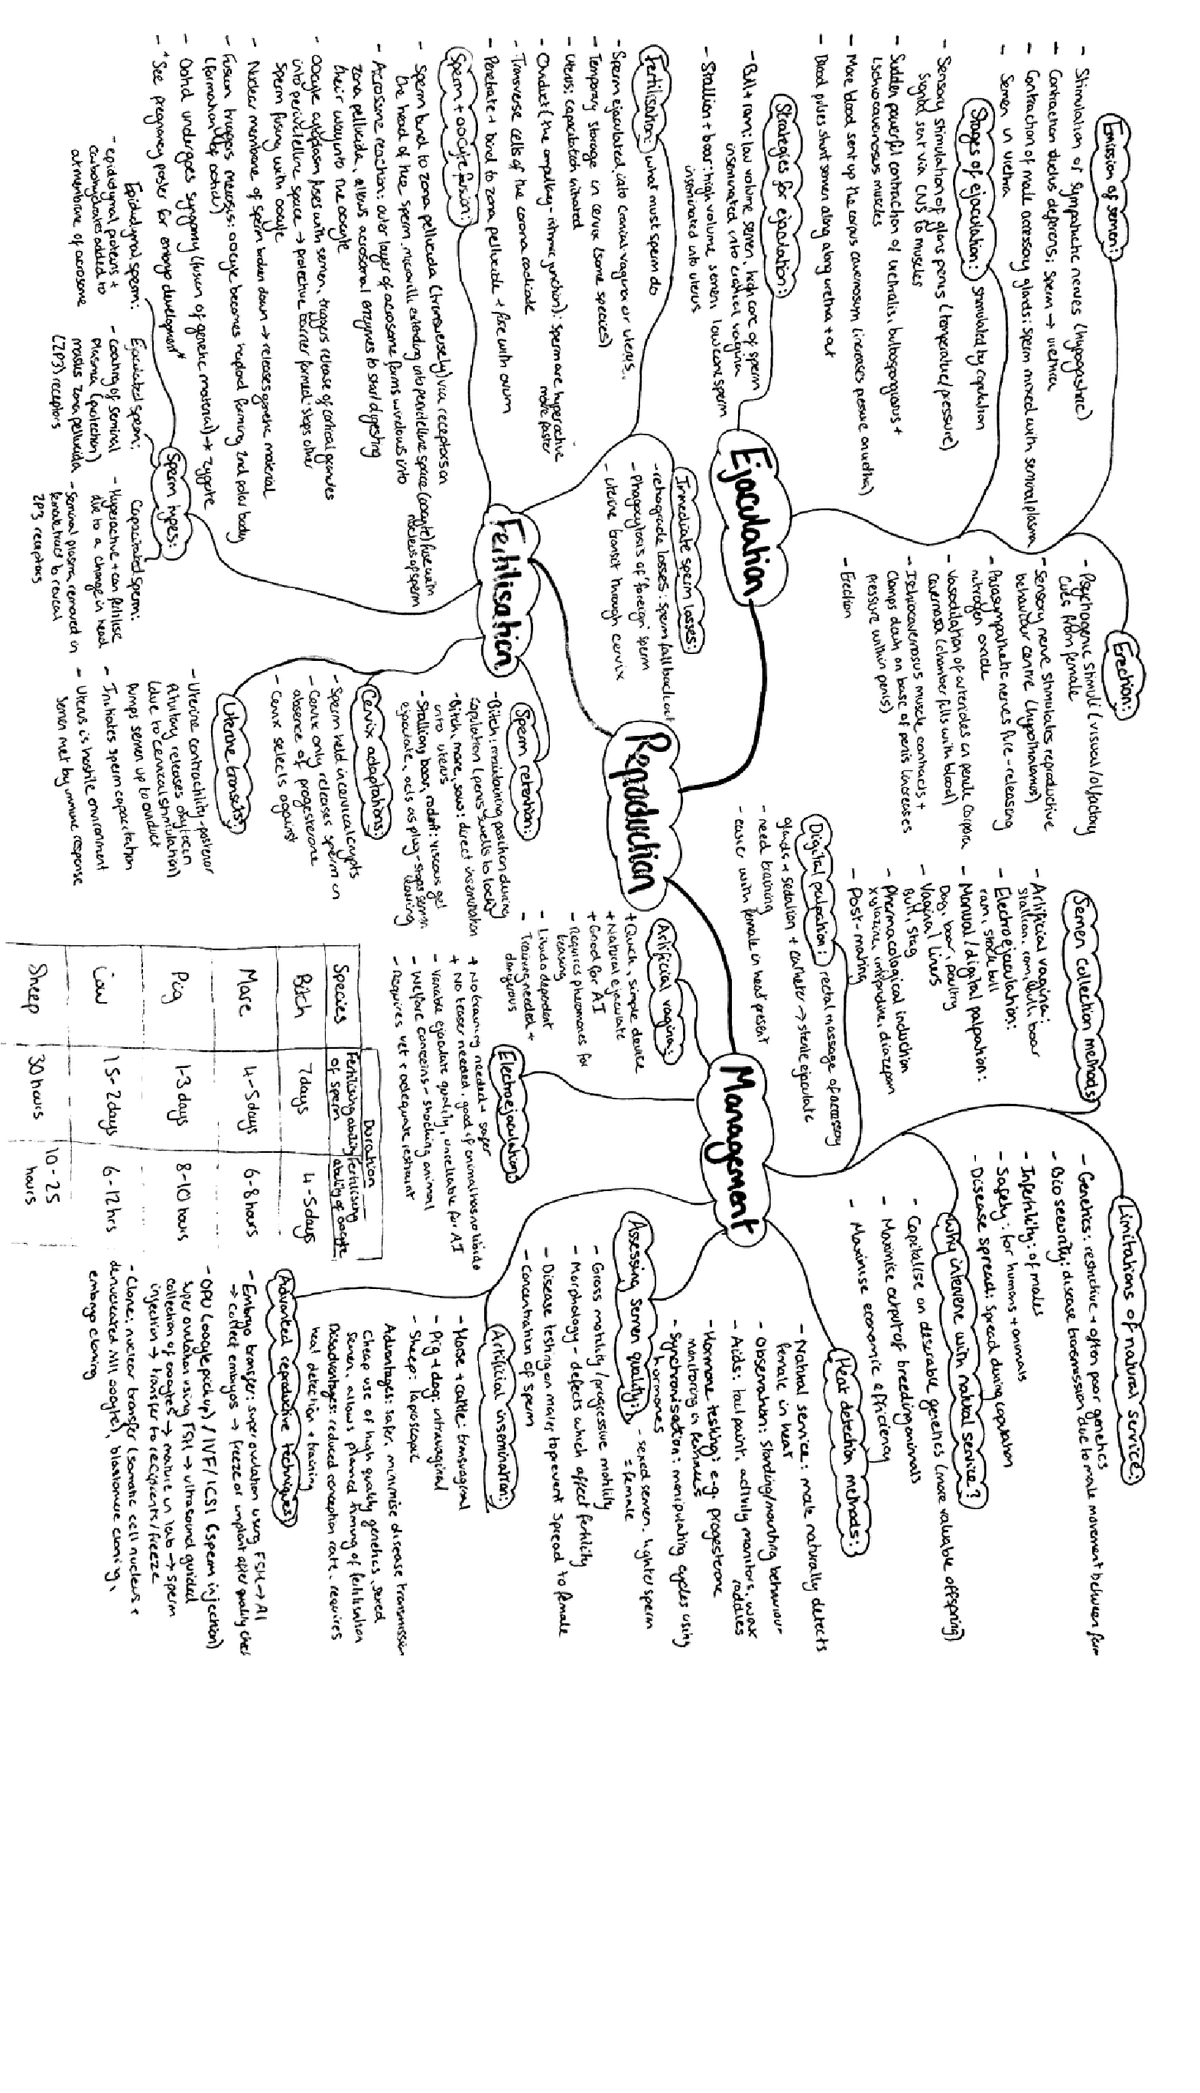 Reproduction
Ejaculation
Emission of semen:
- Stimulation of sympathetic nerves (hypogastric)
- Contraction ductus deferens; sperm → urethra
- Contraction of male accessory glands: sperm mixed with seminal plasma
- Semen in urethra
Stages of ejaculation: stimulated by copulation
- Sensory stimulation of glans penis (temperature/pressure)
signal sent via CNS to muscles
- Sudden powerful contraction of urethralis, bulbospongiosus +
ischiocavernosus muscles
- More blood sent up the corpus cavernosum (increases pressure on urethra)
- Blood pulses shunt semen along urethra + out
Strategies for ejaculation:
- Bull + ram: low volume semen, high conc of sperm
inseminated into cranial vagina
- Stallion + boar: high volume semen, low conc sperm
inseminated into uterus
Erection:
- Psychogenic stimuli (visual/olfactory
cues from female
- Sensory nerve stimulates reproductive
behaviour centre (hypothalamus)
- Parasympathetic nerves fire - releasing
nitrogen oxide
- Vasodilation of arterioles in penile corpora
cavernosa (chamber fills with blood)
- Ischiocavernosus muscle contracts +
clamps down on base of penis (increases
pressure within penis)
- Erection
Fertilisation
Fertilisation: what must sperm do
- Sperm ejaculated into cranial vagina or uterus..
- Temporary storage in cervix (some species)
- Uterus; capacitation initiated
- Oviduct (the ampullary-isthmic junction): sperm are hyperactive
move faster
- Transverse cells of the corona radicale
- Penetrate + bind to zona pellucida + fuse with ovum
Immediate sperm losses:
- retrograde losses: sperm fall back out
- Phagocytosis of 'foreign' sperm
- uterine transit through cervix
Sperm + oocyte fusion:
- Sperm bind to zona pellucida (transversely) via receptors on
the head of the sperm. microvilli extending into perivitelline space (oocyte) fuse with
nucleus of sperm
- Acrosome reaction: outer layer of acrosome forms windows into
zona pellucida, allows acrosomal enzymes to start digesting
their way into the oocyte
- Oocyte cytoplasm fuses with semen, triggers release of cortical granules
into perivitelline space → protective barrier formed: stops other
sperm fusing with oocyte
- Nuclear membrane of sperm broken down → releases genetic material
- Fusion triggers meiosis: oocyte becomes haploid forming 2nd polar body
(formation of ootid)
- Ootid undergoes syngamy (fusion of genetic material) → zygote
- *See pregnancy poster for embryo development*
Sperm types:
Epididymal sperm:
- epididymal proteins +
carbohydrates added to
membrane of acrosome
Ejaculated sperm:
- coating of seminal
plasma (protection)
masks zona pellucida
(ZP3) receptors
Capacitated sperm:
- Hyperactive + can fertilise
due to a change in head
- Seminal plasma removed in
female tract to reveal
ZP3 receptors
Sperm retention:
- Bitch: maintaining position during
copulation (penis swells to lock)
- Bitch, mare, sow: direct insemination
into uterus
- Stallion, boar, rodent: viscous gel
ejaculate, acts as plug - stops semen
leaving
Cervix adaptations:
- Sperm held in cervical crypts
- Cervix only releases sperm in
absence of progesterone
- Cervix selects against
Uterine transets:
- Uterine contractility - posterior
pituitary releases oxytocin
(due to cervical stimulation)
pumps semen up to oviduct
- Initiates sperm capacitation
- Uterus is hostile environment
semen met by immune response
Management
Semen collection methods:
- Artificial vagina:
stallion, ram, bull, boar
- Electroejaculation:
ram, stock bull
- Manual/digital palpation:
Dog, boar, poultry
- Vaginal liners
Bull, stag
- Pharmacological induction
xylazine, imipramine, diazepam
- Post-mating
Digital palpation: rectal massage of accessory
glands + sedation + catheter → sterile ejaculate
- need training
- easier with female in heat present
Artificial vagina:
+ Quick, simple device
+ Natural ejaculate
+ Good for AI
- Requires pheromones for
teasing
- Libido dependent
- Training needed +
dangerous
Electroejaculation?
+ No training needed + safer
+ No teaser needed, good if animal has no libido
- Variable ejaculate quality, unreliable for AI
- Welfare concerns - shocking animal
- Requires vet + adequate restraint
Limitations of natural service:
- Genetics: restrictive + often poor genetics
- Bio security: disease transmission due to male movement between farm
- Infertility: of males
- Safety: for humans + animals
- Disease spread: spread during copulation
Why intervene with natural service?
- Capitalise on desirable genetics (more valuable offspring)
- Maximise output of breeding animals
- Maximise economic efficiency
Heat detection methods:
- Natural service: male naturally detects
female in heat
- Observation: standing/mounting behaviour
- Aids: tail paint, activity monitors, wax
raddles
- Hormone testing: e.g. progesterone
monitoring in females
- Synchronisation: manipulating cycles using
hormones
Assessing semen quality:
- sexed semen - lighter sperm
= female
- Gross motility / progressive motility
- Morphology - defects which effect fertility
- Disease testing on males, to prevent spread to female
- Concentration of sperm
Artificial insemination:
- Horse + cattle: transvaginal
- Pig + dog: intravaginal
- Sheep: laparoscopic
Advantages: safer, minimise disease transmission
cheap use of high quality genetics, sexed
semen, allows planned timing of fertilisation
Disadvantages: reduced conception rate, requires
heat detection + training
Advanced reproductive techniques:
- Embryo transfer: super ovulation using FSH → AI
→ collect embryos → freeze or implant after quality check
- OPU (oogle pickup) / IVF / ICSI (sperm injection)
super ovulation using FSH → ultrasound guided
collection of oocytes → mature in lab → sperm
injection → transfer to recipients / freeze
- Clone: nuclear transfer (somatic cell nucleus +
denucleated MII oocyte), blastomere cloning,
embryo cloning
Duration
Species Fertilising ability of sperm Fertilising ability of oocyte
Bitch 7 days 4-5 days
Mare 4-5 days 6-8 hours
Pig 1-3 days 8-10 hours
Cow 1.5-2 days 6-12 hrs
Sheep 30 hours 10-25 hours